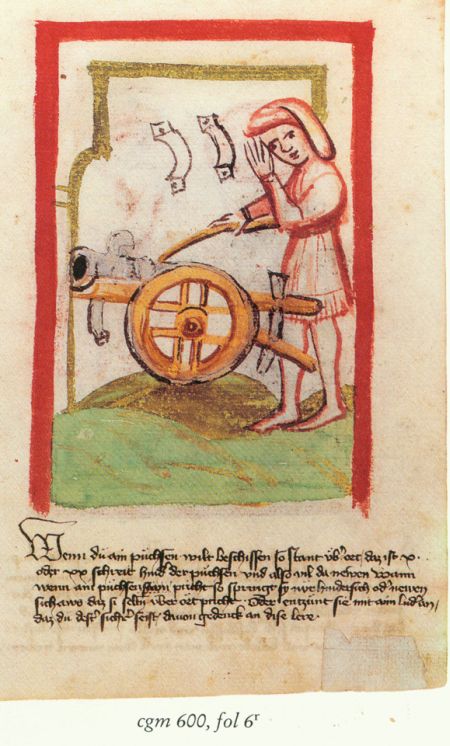 Wenn du ain püchsen wilt beschissen so stant vber ort daz ist x
oder xx schreit hind der püchsen vnd also vil da neuen wann
wenn ain püchsen pricht so springt sy hindersich od neuen
sich daz si selbn vber ort pricht Oder entzünt sie mit ain
daz du dest sichrer seist dauon gedenck an dise lere
cgm 600, fol 6ʳ